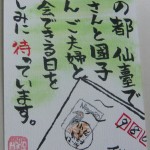 の都 仙臺で
さんと國子
ん ご夫妻と
会できる日を
しみに待っています。